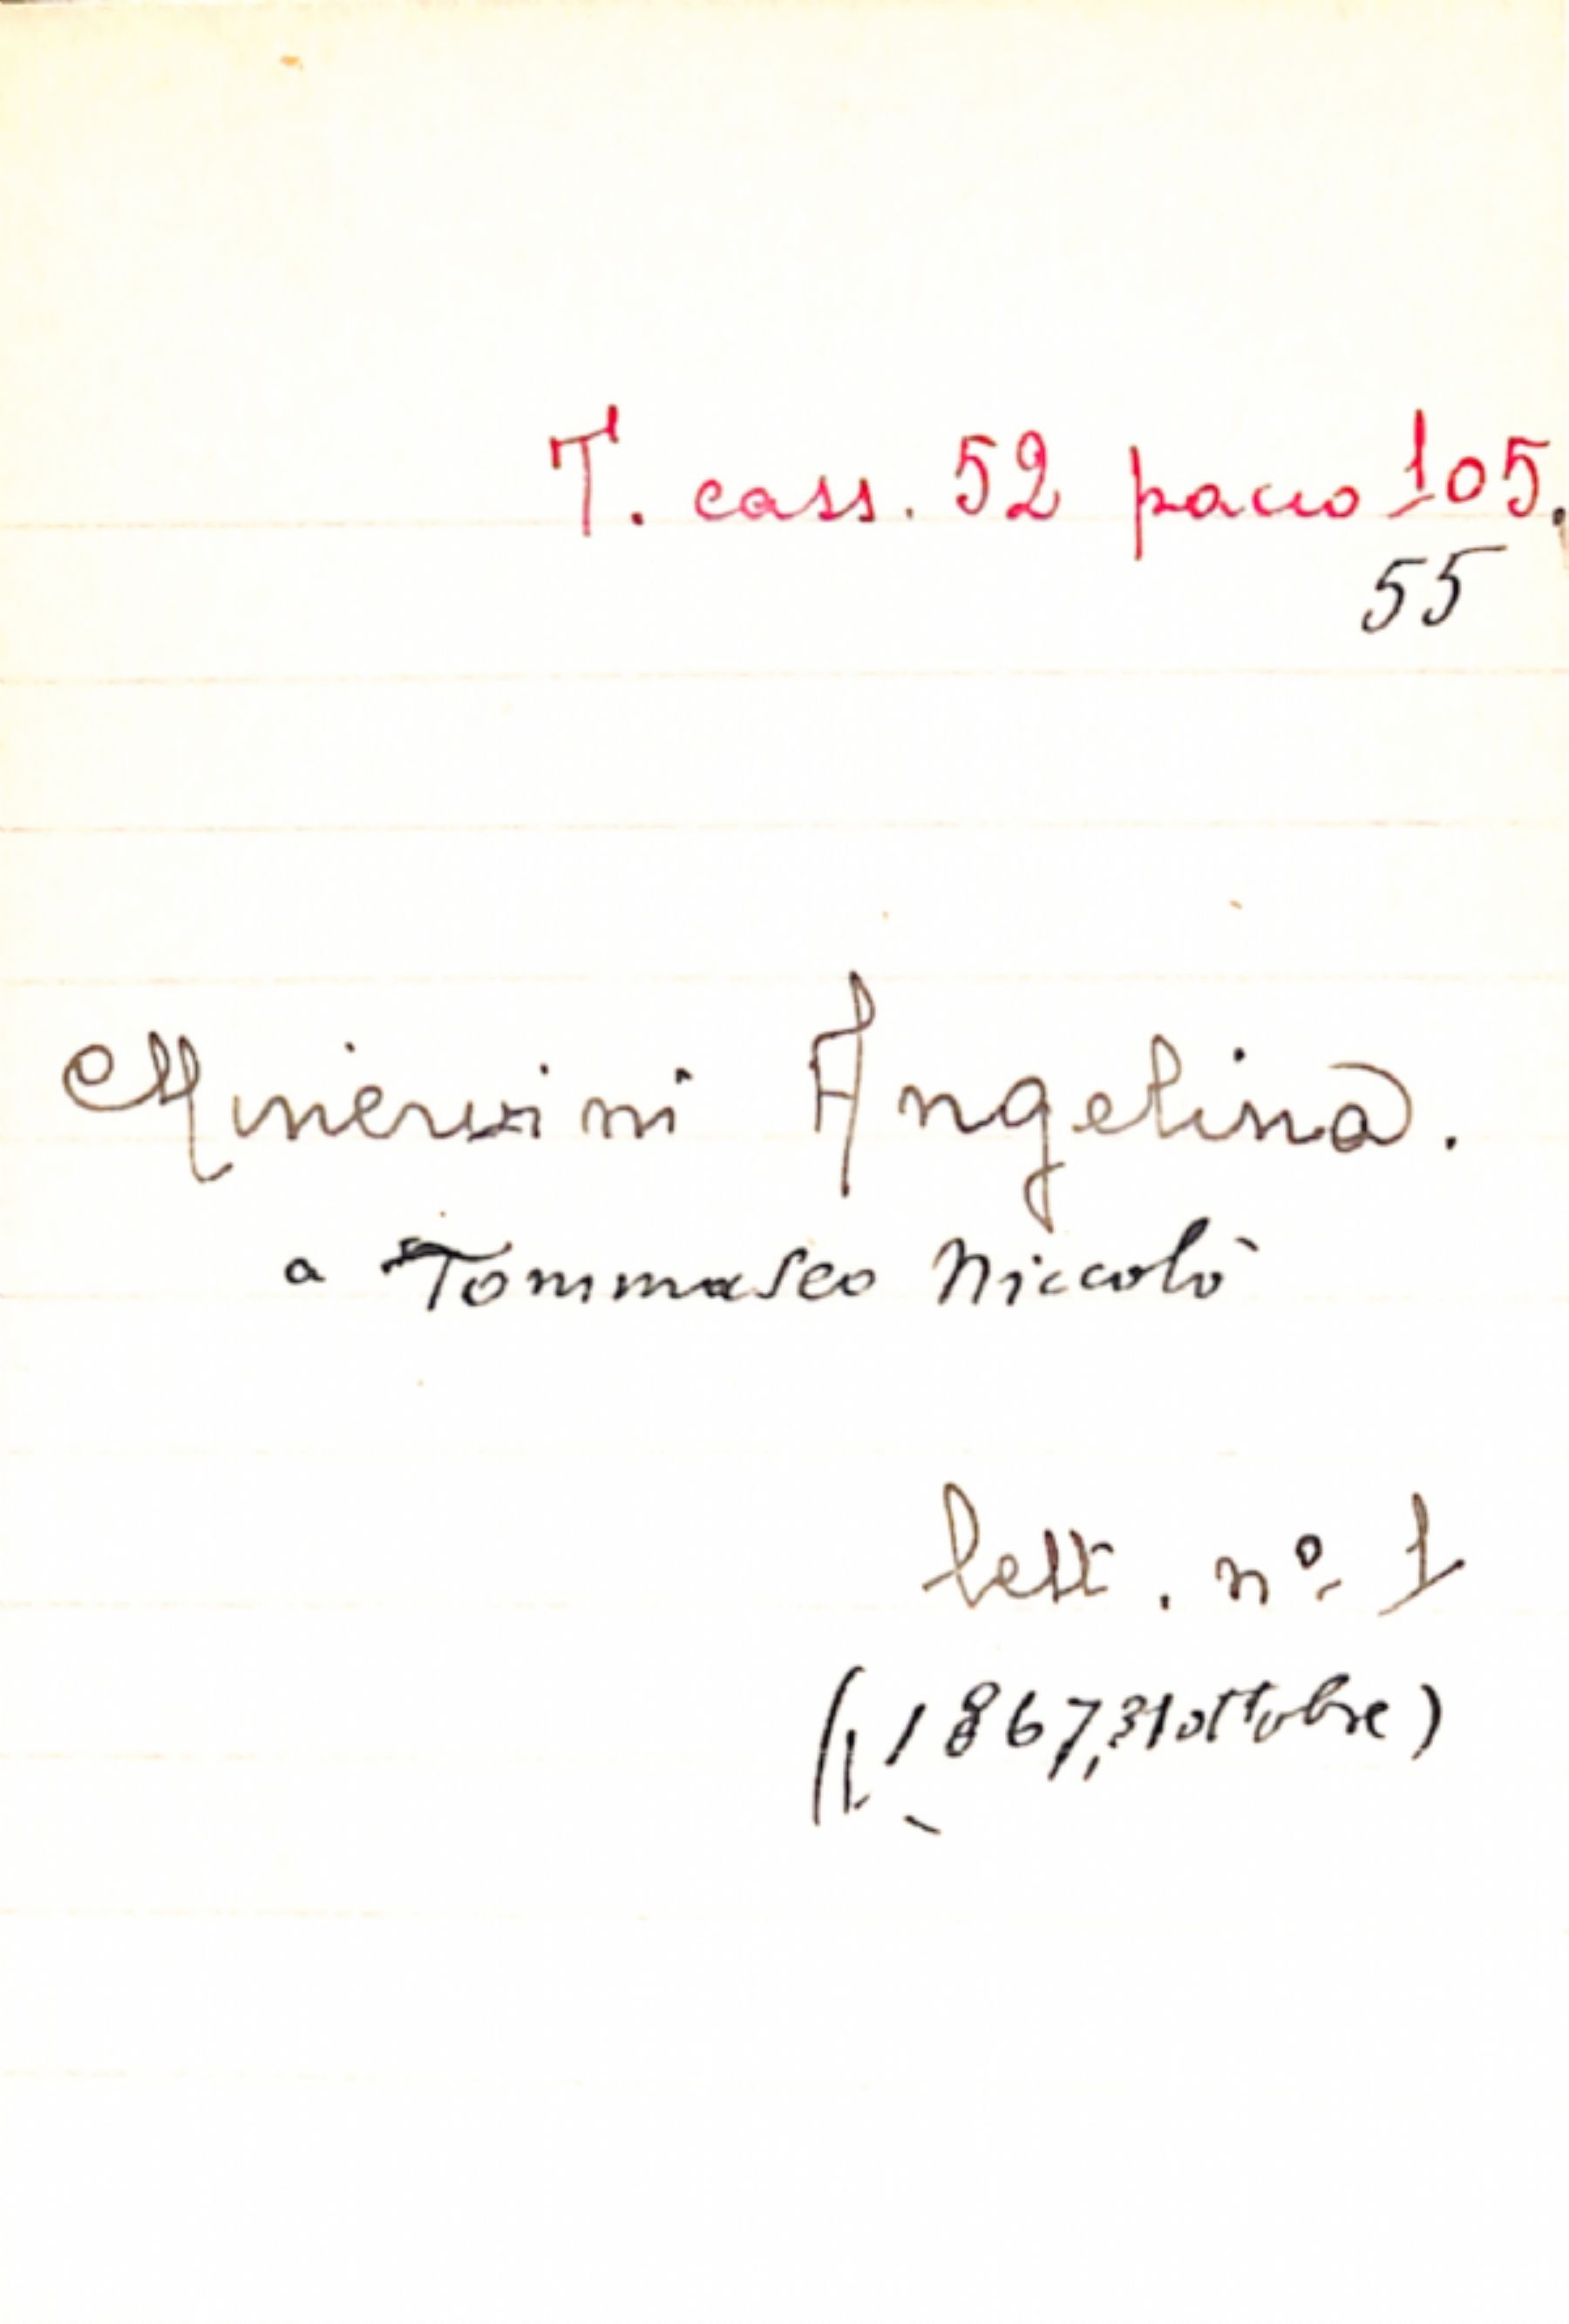 T. cass. 52 pacco 105.
55
Minervini Angelina.
a Tommaseo Niccolò
lett. nº 1
(1867, 31 ottobre)